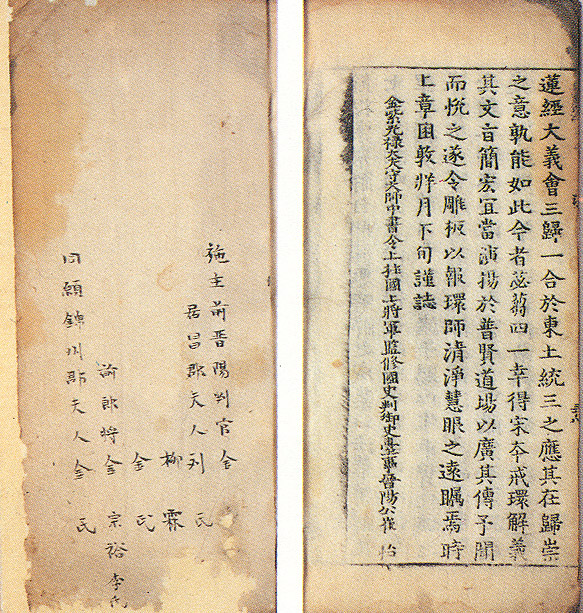 蓮經大義會三歸一合於東土統三之應其在歸崇
之意孰能如此今者苾蒭四一幸得宋夲戒環解義
其文言簡宏宜當演揚於普賢道場以廣其傳予聞
而悅之遂令雕板以報環師清淨慧眼之遠矚焉時
上章困敦牂月下旬謹誌
金紫光祿大夫守太師中書令上柱國上將軍監修國史判御史臺事晉陽公崔 怡
施主前晋陽判官金
居昌郡夫人刘 氏
柳 霖
金 氏
郎將金 宗裕 李氏
同願錦州郡夫人金 氏